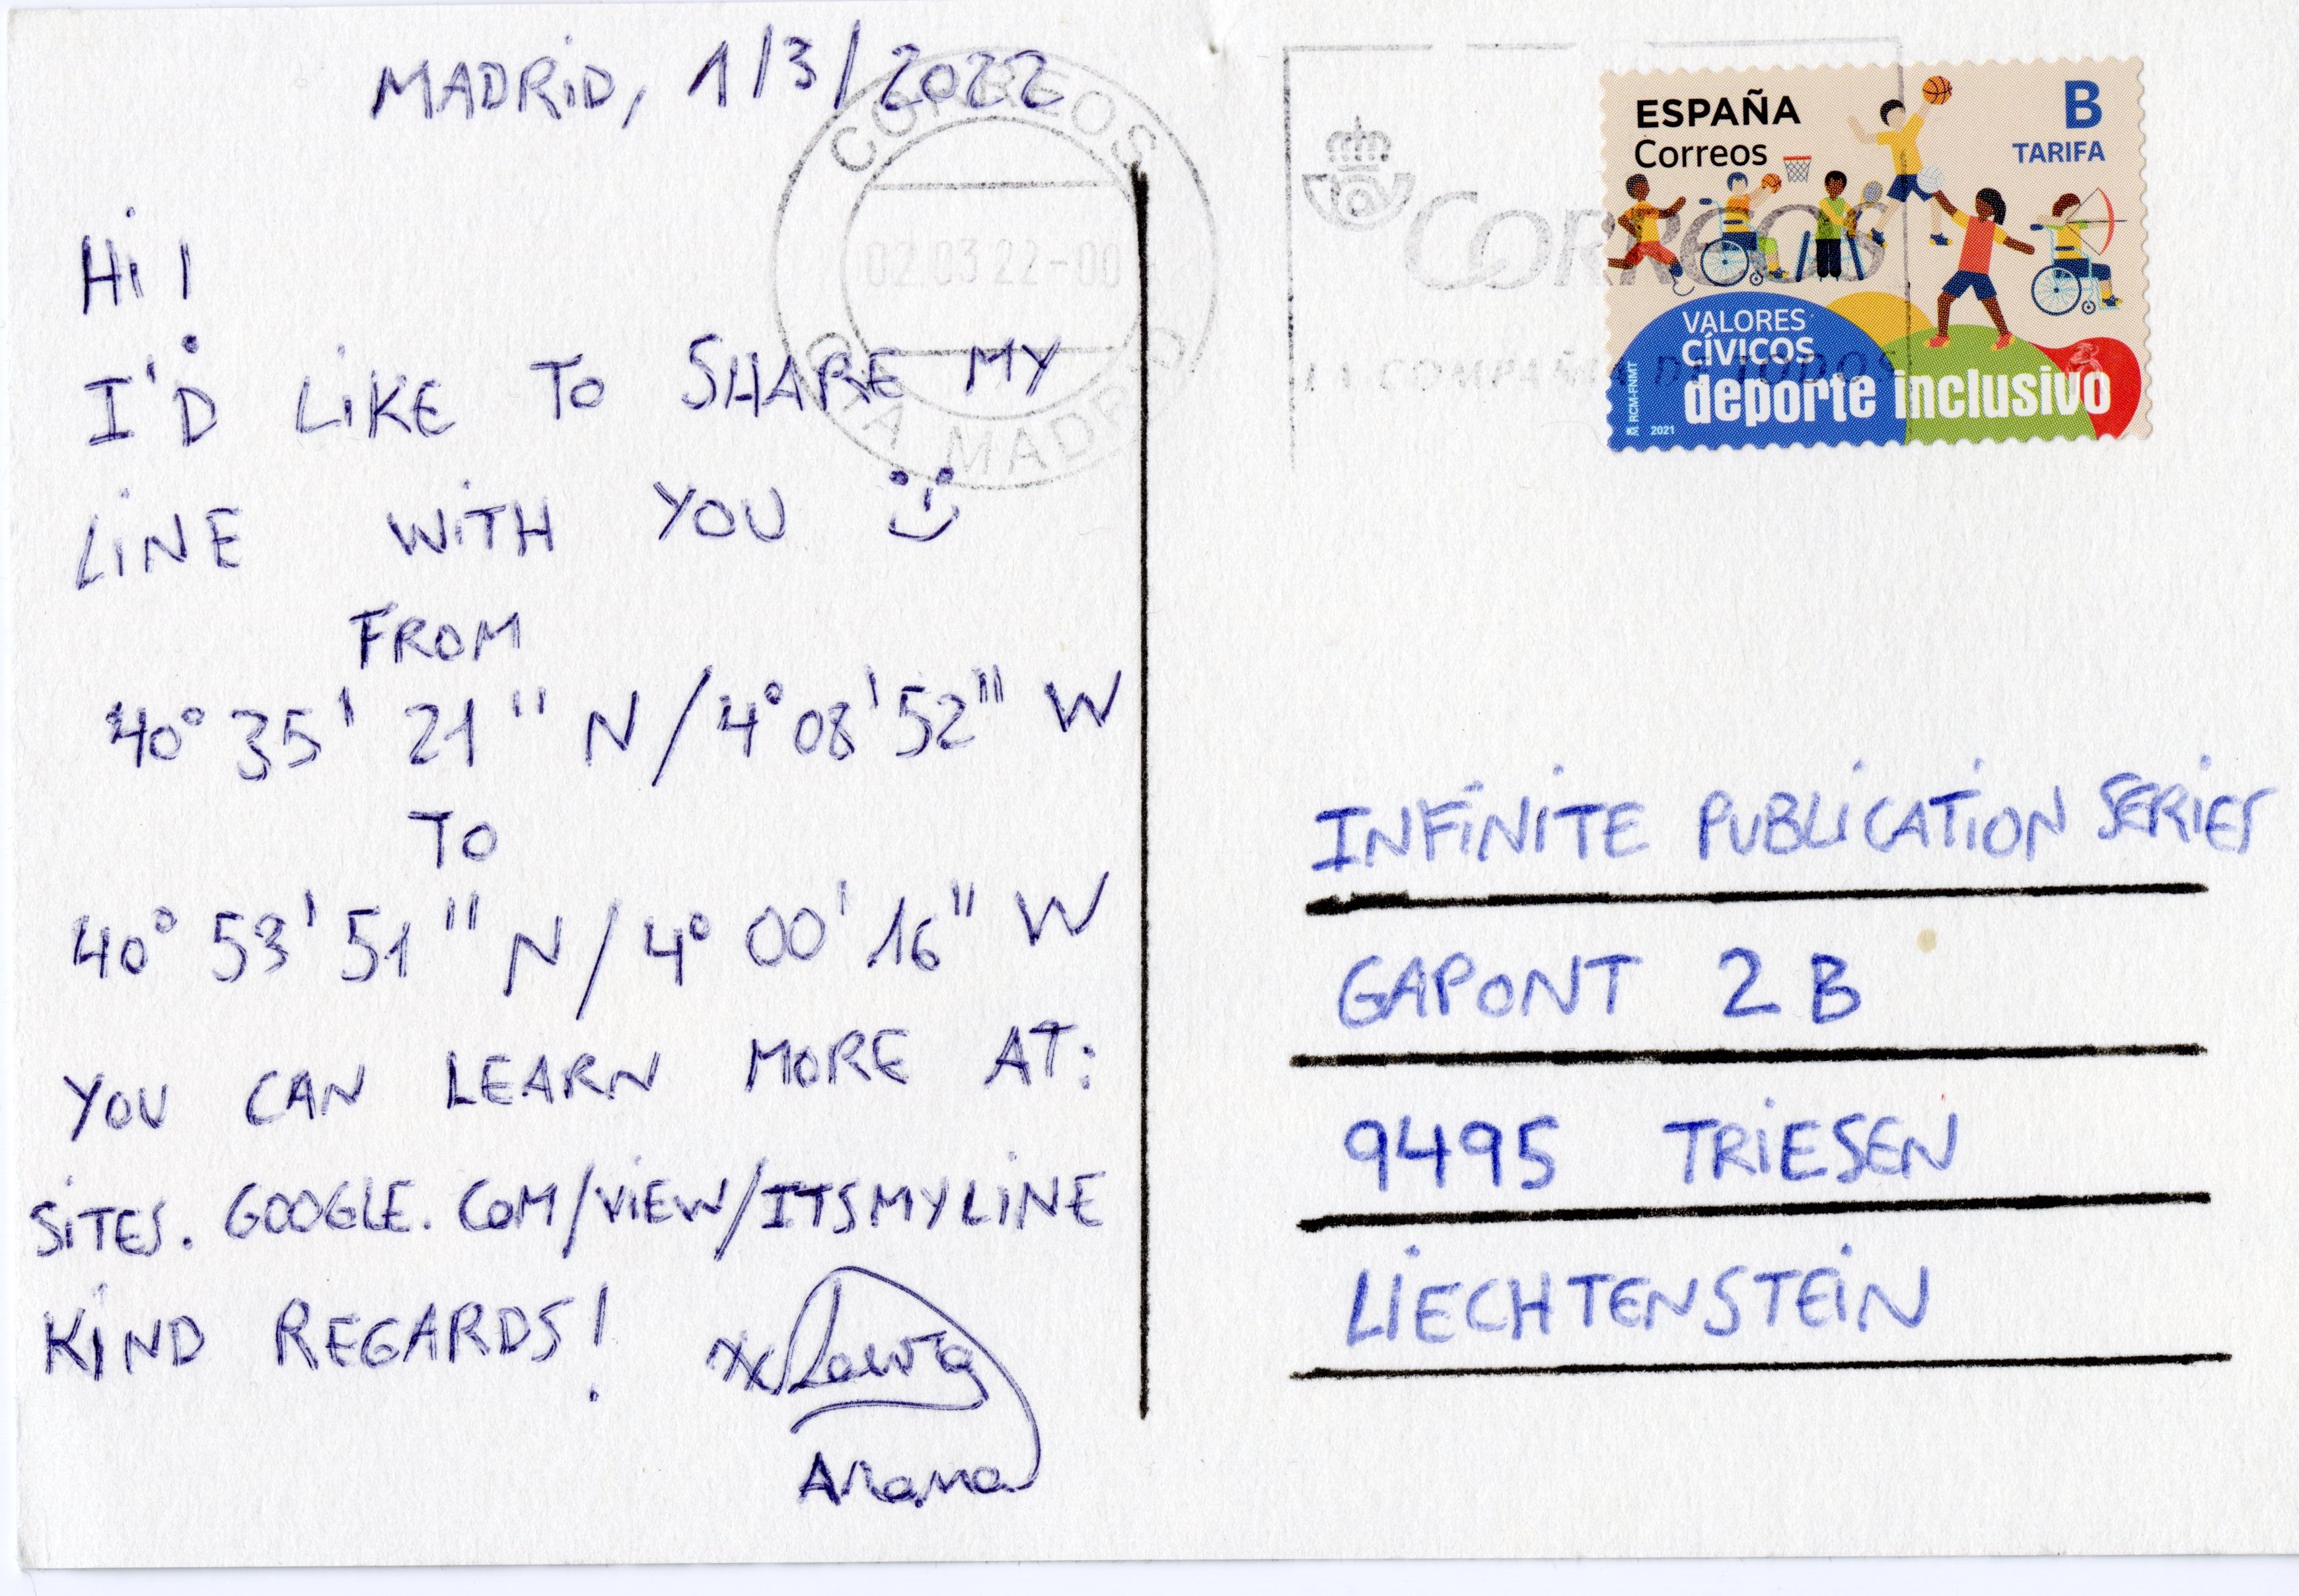 MADRiD, 1/3/2022
Hi!
I'D LiKE TO SHARE MY
LiNE WiTH YOU
FROM
40° 35' 21'' N/4° 08' 52''' W
TO
40° 53' 51'' N/4° 00' 16'' W
YOU CAN LEARN MORE AT:
SiTES.GOOGLE.COM/ViEW/ITSMYLiNE
KiND REGARDS!
Arana
CORREOS
02.03 22-00
MADRID
CORREOS
LA COMPAÑÍA DE TODOS
ESPAÑA
Correos
B
TARIFA
VALORES
CÍVICOS
deporte inclusivo
RCM-FNMT
2021
INFiNiTE PUBLiCATiON SERiES
GAPONT 2B
9495 TRiESEN
LiECHTENSTEiN